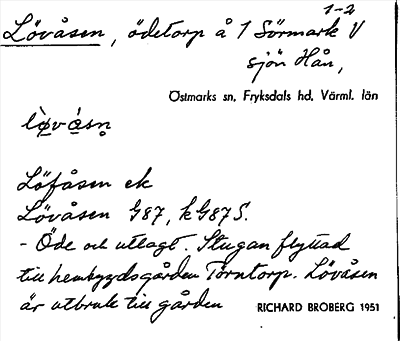 1-2
Lövåsen, ödetorp å 1 Sörmark V
sjön Hån,
Östmarks sn, Fryksdals hd, Värml. län
Löfåsen ek
Lövåsen G87, kG87S.
- Öde och utlagt. Stugan flyttad
till hembygdsgården Torntorp. Lövåsen
är utbruk till gården
RICHARD BROBERG 1951